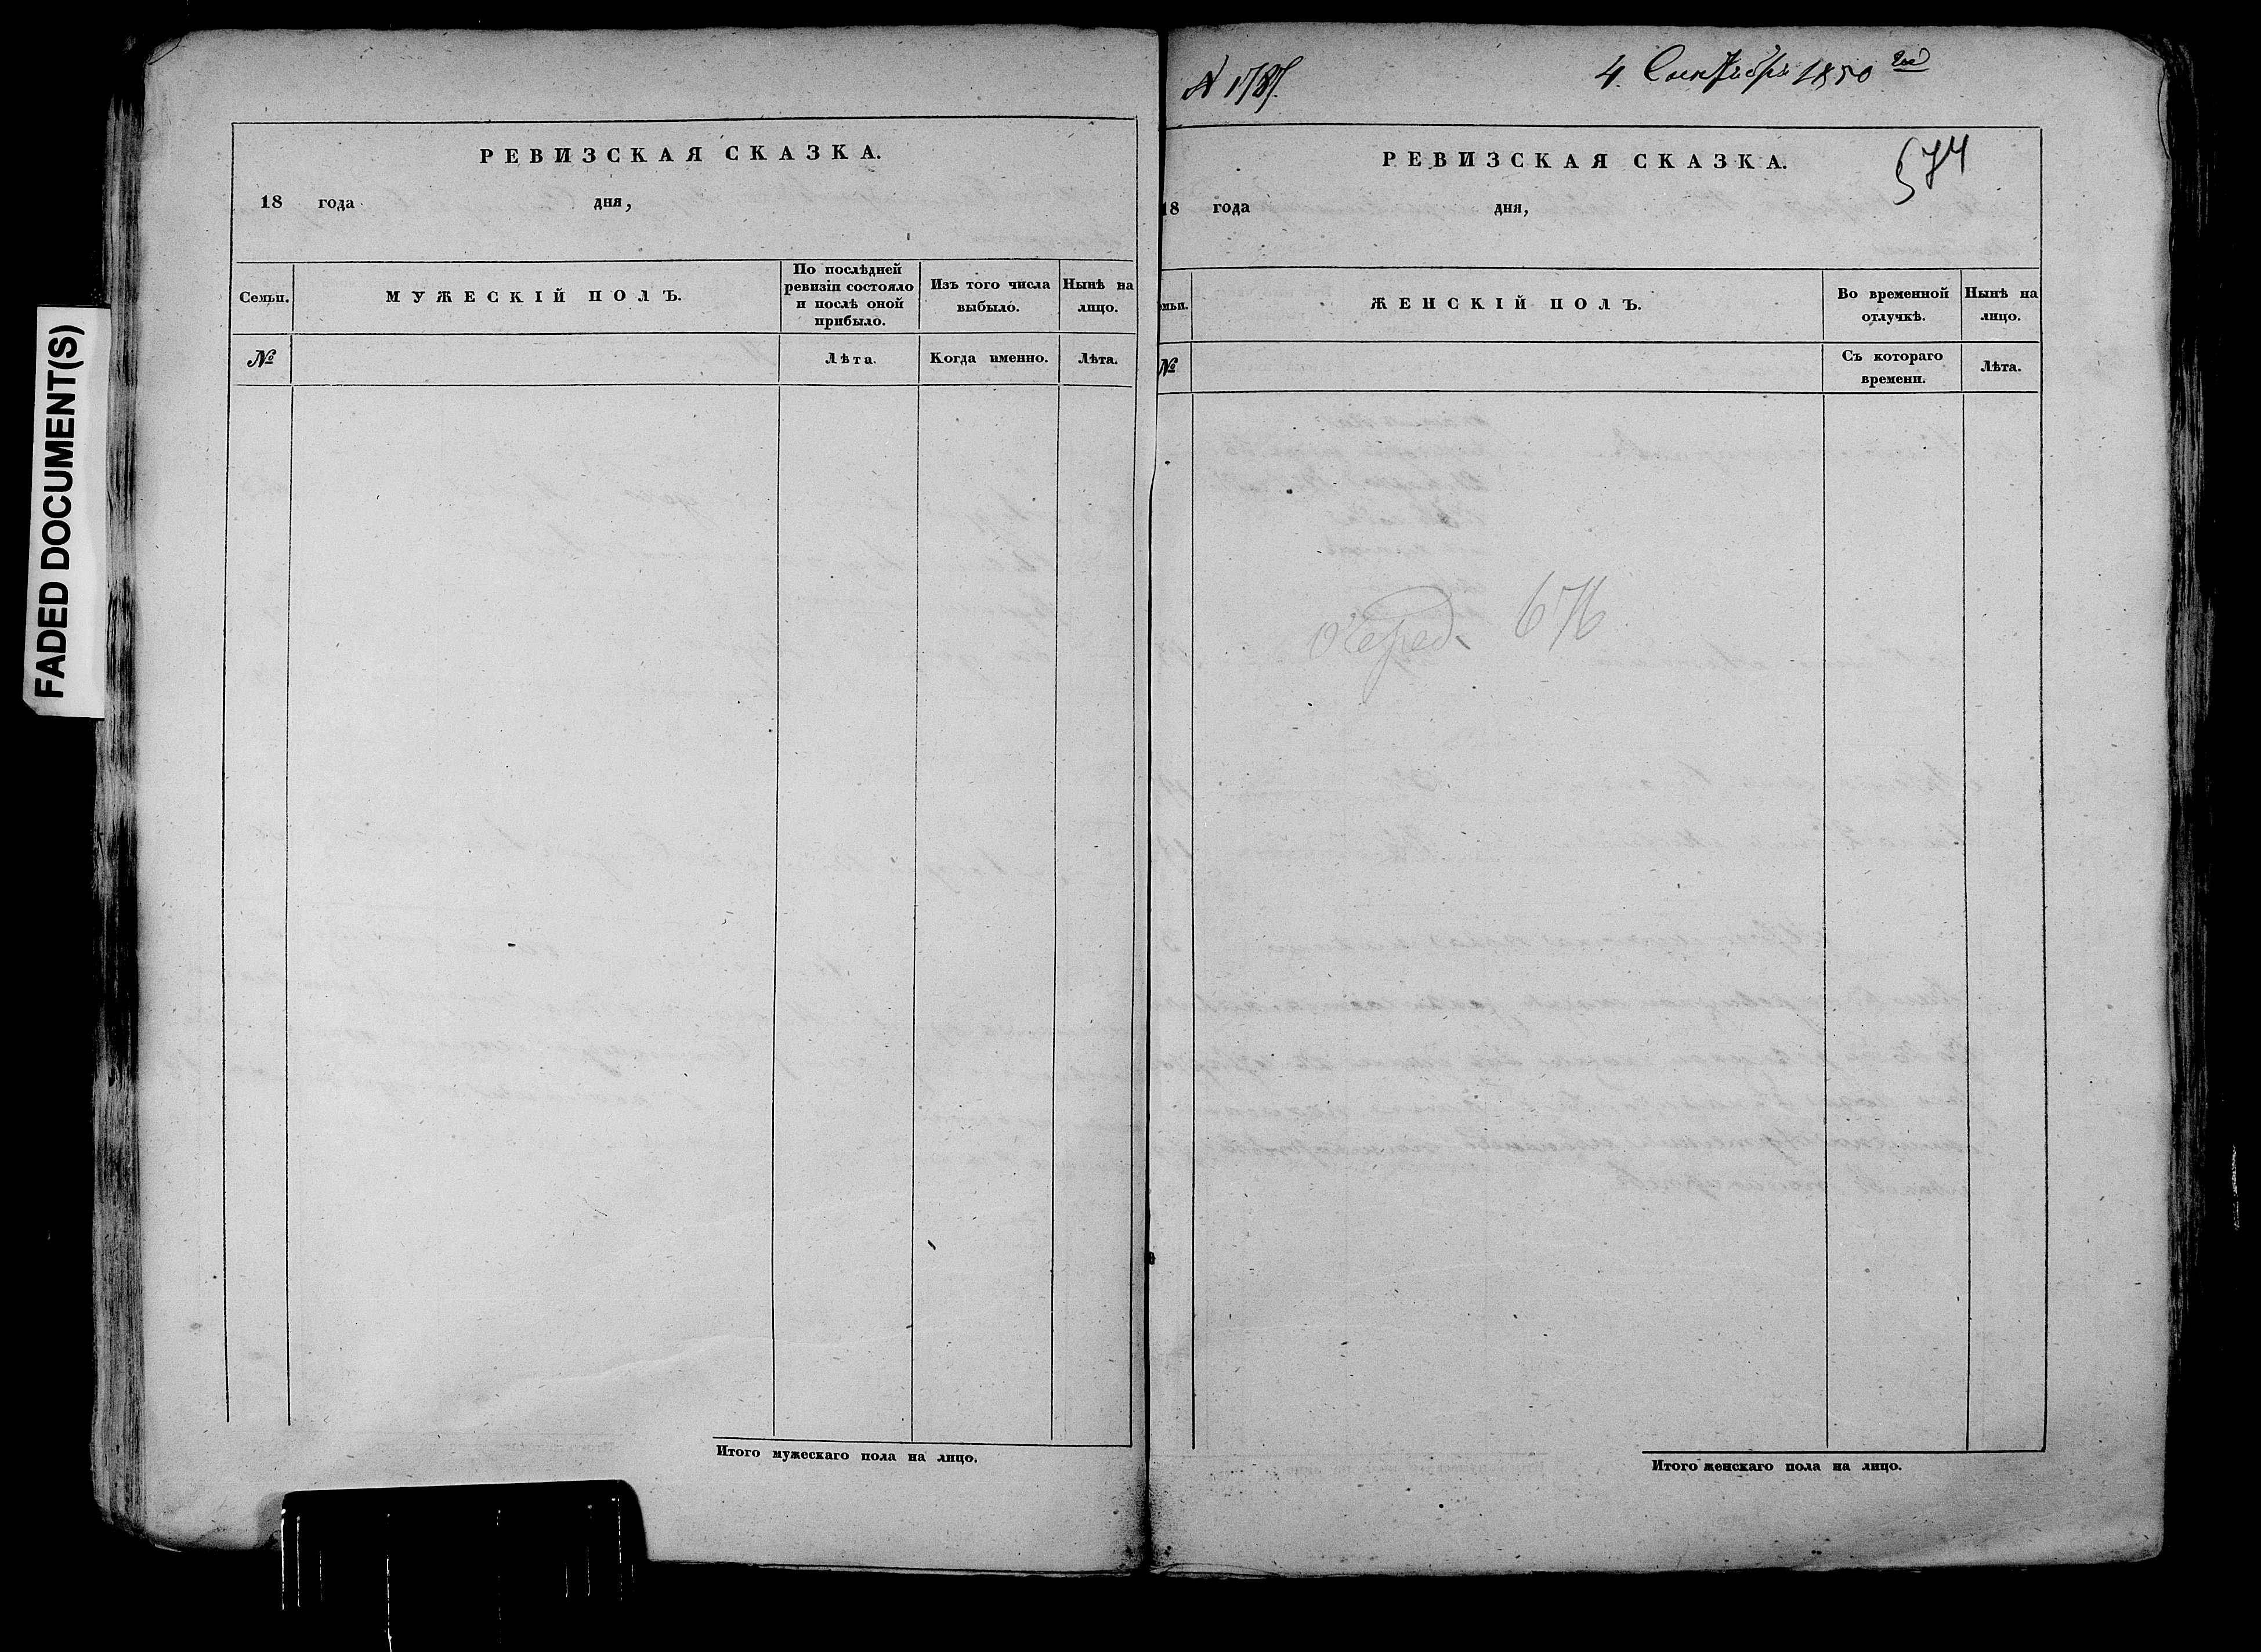 FADED DOCUMENT(S)
РЕВИЗСКАЯ СКАЗКА.
18 года дня,
Семьи.
МУЖЕСКІЙ ПОЛЪ.
По послѣдней
ревизіи состояло
и послѣ оной
прибыло.
Изъ того числа
выбыло.
Нынѣ на
лицо.
№
Лѣта.
Когда именно.
Лѣта.
Итого мужескаго пола на лицо.
4 Сентября 1850
574
РЕВИЗСКАЯ СКАЗКА.
18 года дня,
мьи.
ЖЕНСКІЙ ПОЛЪ.
Во временной
отлучкѣ.
Нынѣ на
лицо.
№
Съ котораго
времени.
Лѣта.
очеред. 676
Итого женскаго пола на лицо.